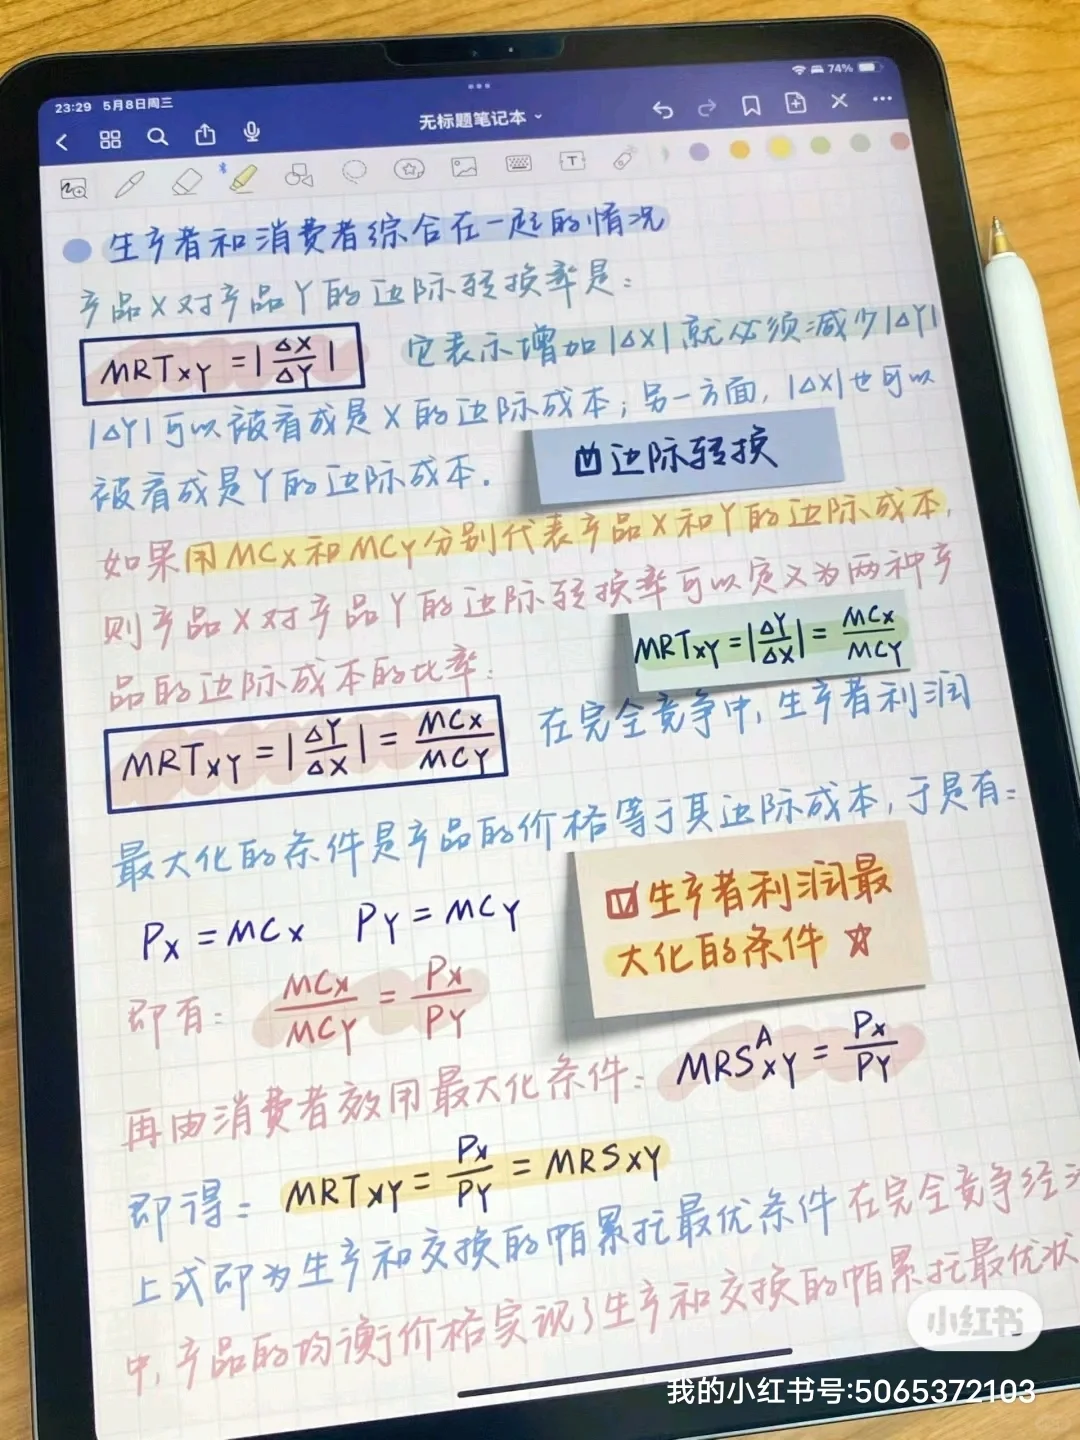 23:29 5月8日周三
74%
无标题笔记本
生产者和消费者综合在一起的情况
产品X对产品Y的边际转换率是：
MRTxY = |ΔX/ΔY| 它表示增加|ΔX|就必须减少|ΔY|
|ΔY|可以被看成是X的边际成本；另一方面，|ΔX|也可以
被看成是Y的边际成本.
凹 边际转换
如果用MCx和MCY分别代表产品X和Y的边际成本，
则产品X对产品Y的边际转换率可以定义为两种产
品的边际成本的比率：
MRTxY = |ΔY/ΔX| = MCx/MCY
MRTxY = |ΔY/ΔX| = MCx/MCY 在完全竞争中，生产者利润
最大化的条件是产品的价格等于其边际成本，于是有：
Px = MCx PY = MCY
生产者利润最
大化的条件
即有： MCx/MCY = Px/PY
再由消费者效用最大化条件： MRS^A xY = Px/PY
即得： MRTxY = Px/PY = MRSxY
上式即为生产和交换的帕累托最优条件 在完全竞争经
中，产品的均衡价格实现了生产和交换的帕累托最优状
小红书
我的小红书号:5065372103